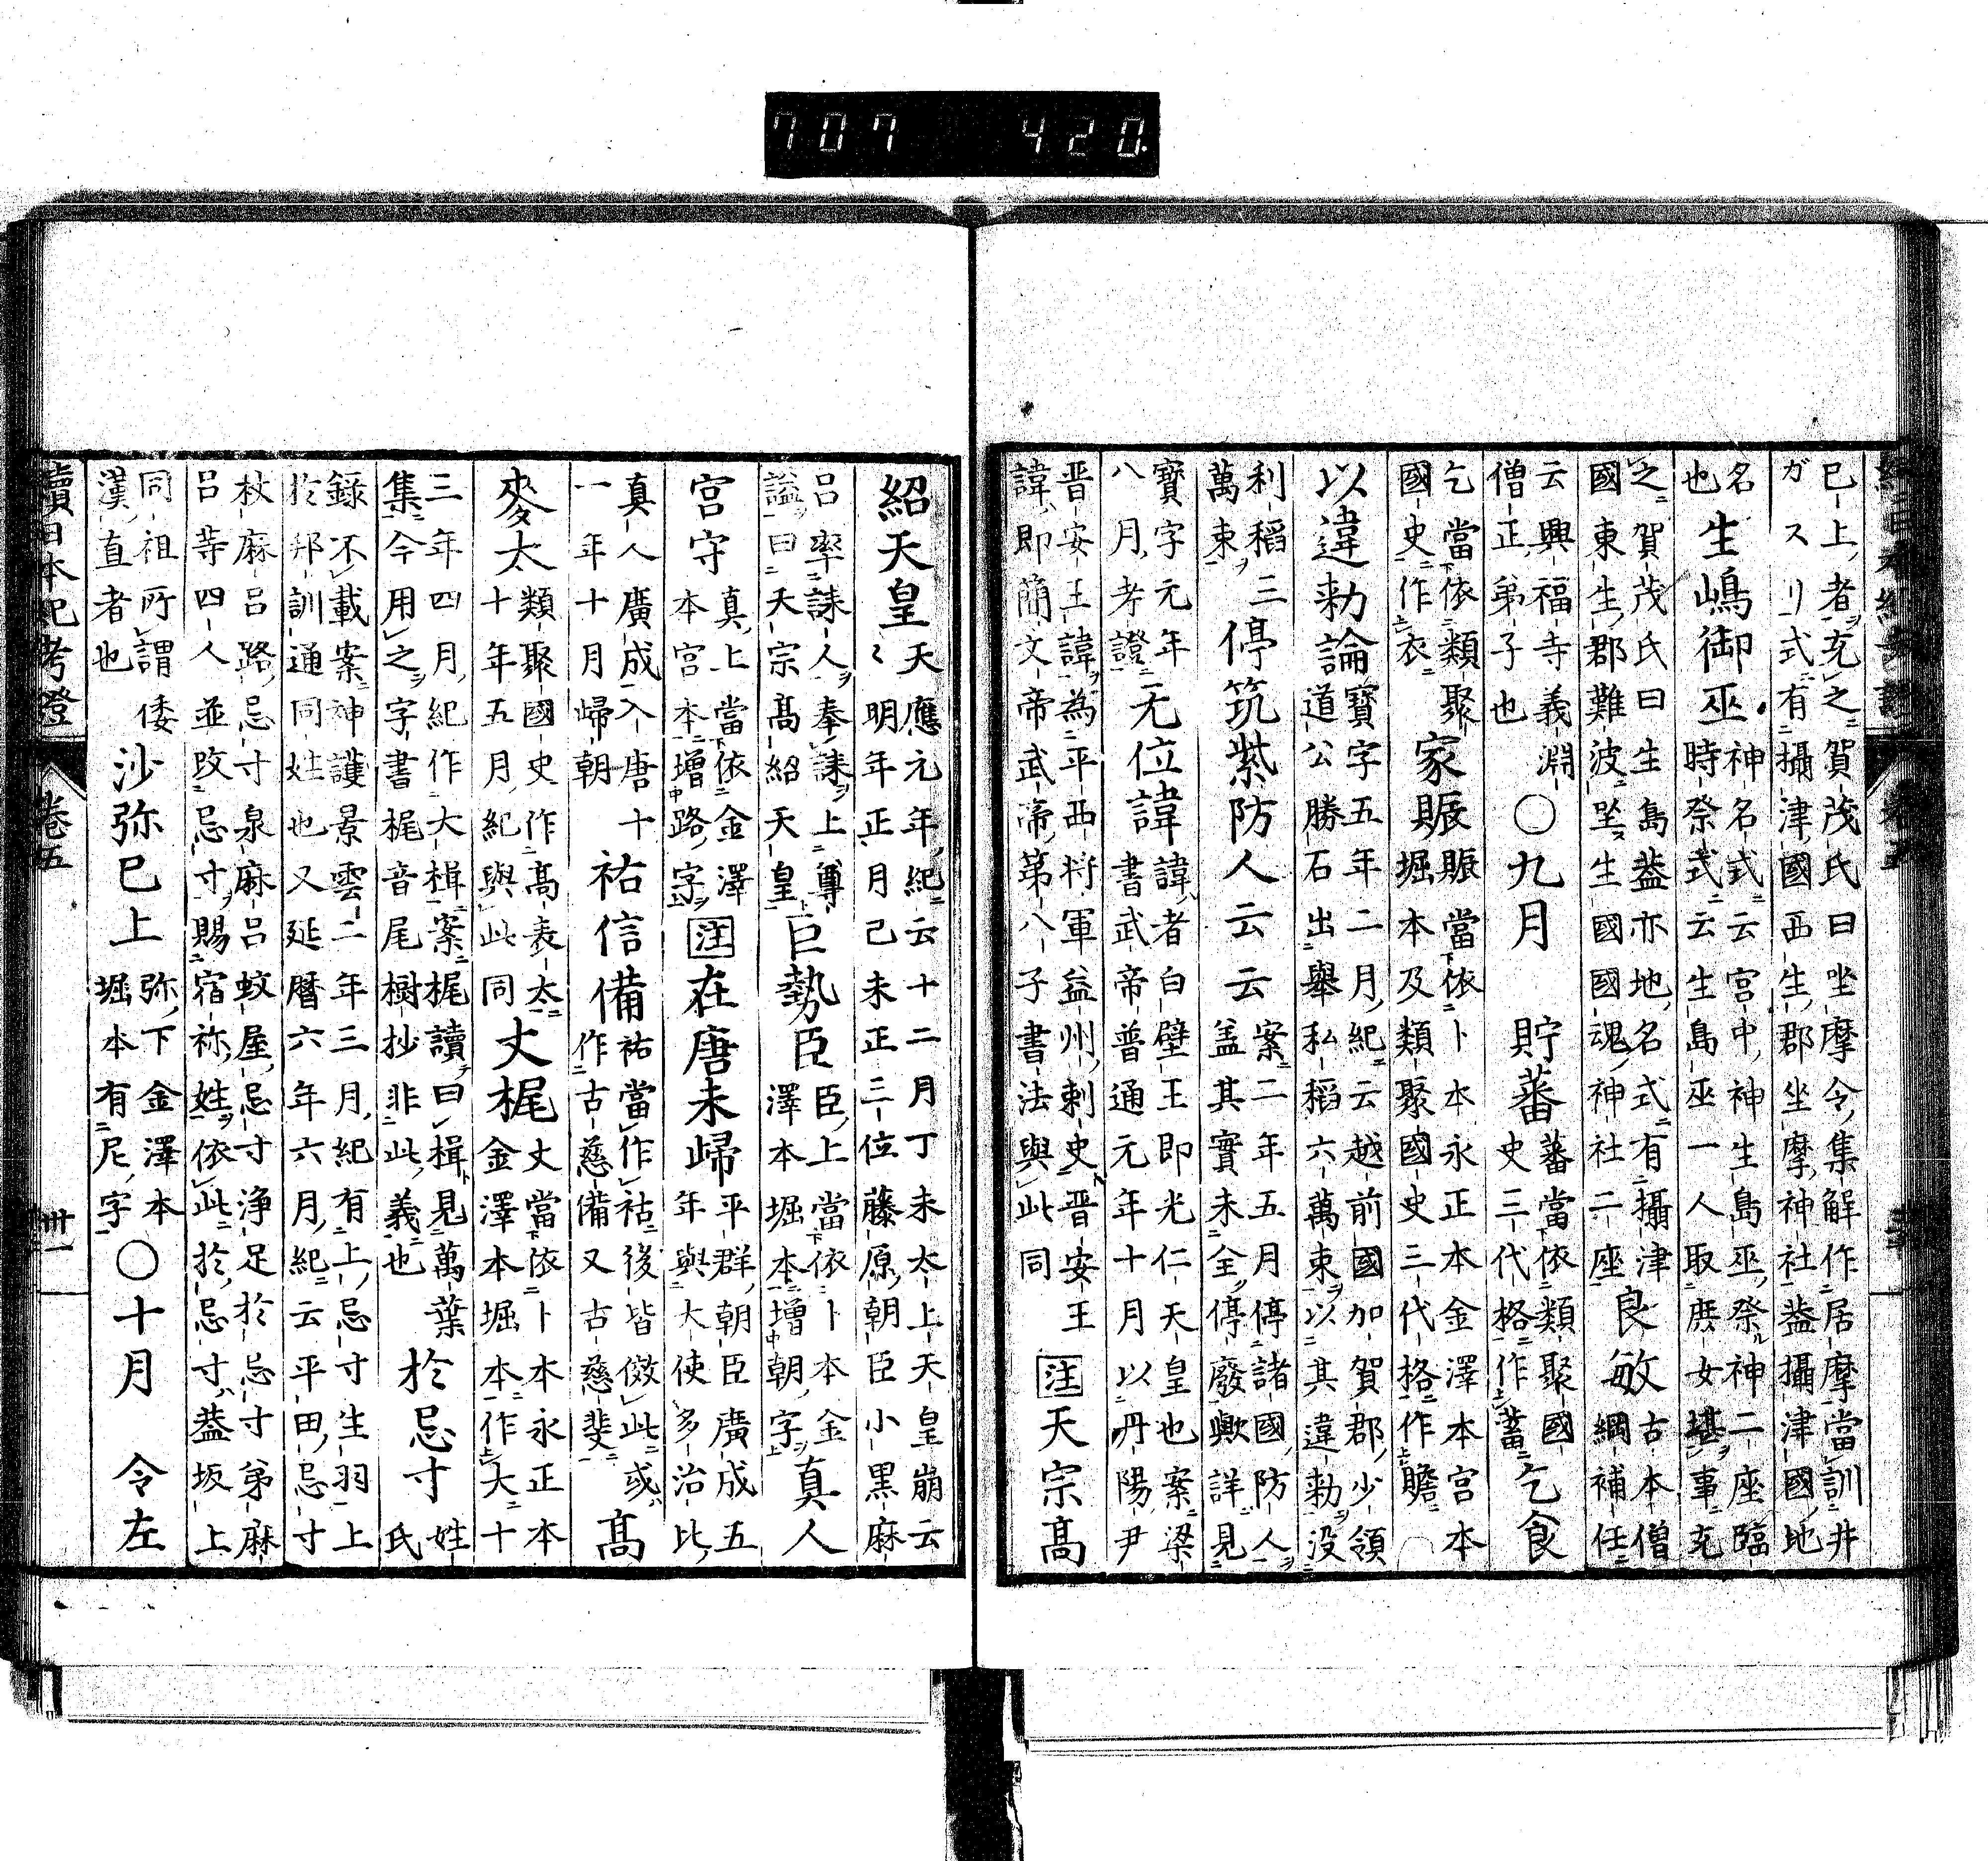 巳上者充之賀茂氏曰坐摩令集解作居摩當訓井
ガスリ式有攝津國西生郡坐摩神社蓋攝津國地
名
也
生嶋御巫
神名式云宮中神生島巫祭神二座臨
時祭式云生島巫一人取庶女堪事充
之賀茂氏曰生島蓋亦地名式有攝津
國東生郡難波坐生國國魂神社二座
良敏
古本僧
綱補任
云興福寺義淵
僧正弟子也
○九月 貯蕃
蕃當依類聚國
史三代格作蓄
乞食
乞當依類聚
國史作衣
家賑
賑當依卜本永正本金澤本宮本
堀本及類聚國史三代格作贍
以違勅論
寶字五年二月紀云越前國加賀郡少領
道公勝石出舉私稻六萬束以其違勅没
利稻三
萬束
停筑紫防人云云
案二年五月停諸國防人
盖其實未全停廢歟詳見
寶字元年
八月考證
无位諱
諱者白壁王即光仁天皇也案梁
書武帝普通元年十月以丹陽尹
晋安王諱為平西將軍益州刺史晋安王
諱即簡文帝武帝第八子書法與此同
注 天宗高
紹天皇
天應元年紀云十二月丁未太上天皇崩云
〻明年正月己未正三位藤原朝臣小黒麻
呂率誄人奉誄上尊
謚曰天宗高紹天皇
巨勢臣
臣上當依卜本金
澤本堀本増朝字
真人
宮守
真上當依金澤
本宮本増路字
注 在唐未歸
平群朝臣廣成五
年與大使多治比
真人廣成入唐十
一年十月歸朝
祐信備
祐當作祜後皆倣此或
作古慈備又古慈斐
高
麥太
類聚國史作高表太
十年五月紀與此同
丈梶
丈當依卜本永正本
金澤本堀本作大十
三年四月紀作大楫案梶讀曰楫見萬葉
集今用之字書梶音尾樹抄非此義也
於忌寸
姓
氏
録不載案神護景雲二年三月紀有上忌寸生羽上
於邦訓通同姓也又延暦六年六月紀云平田忌寸
杖麻呂路忌寸泉麻呂蚊屋忌寸浄足於忌寸弟麻
呂等四人並改忌寸賜宿祢姓依此於忌寸蓋坂上
同祖所謂倭
漢直者也
沙弥巳上
弥下金澤本
堀本有尼字
○十月 令左
續日本紀考證 卷五 卅一